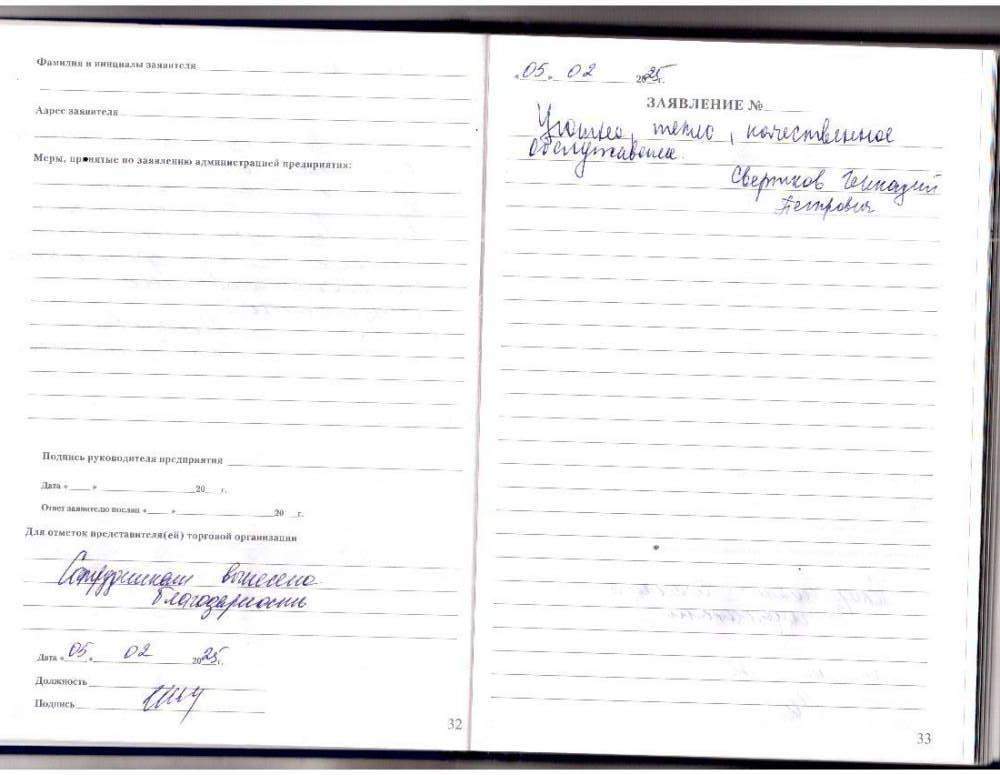 Фамилия и инициалы заявителя
Адрес заявителя
Меры, принятые по заявлению администрацией предприятия:
Подпись руководителя предприятия
Дата « » 20 г.
Ответ заявителю послан « » 20 г.
Для отметок представителя(ей) торговой организации
Сотрудникам вынесено
благодарность
Дата «05» 02 2025г.
Должность
Подпись
32
05. 02 2025г.
ЗАЯВЛЕНИЕ №
Уютно, тепло, качественное
обслуживание.
Свертков Геннадий
Петрович
33